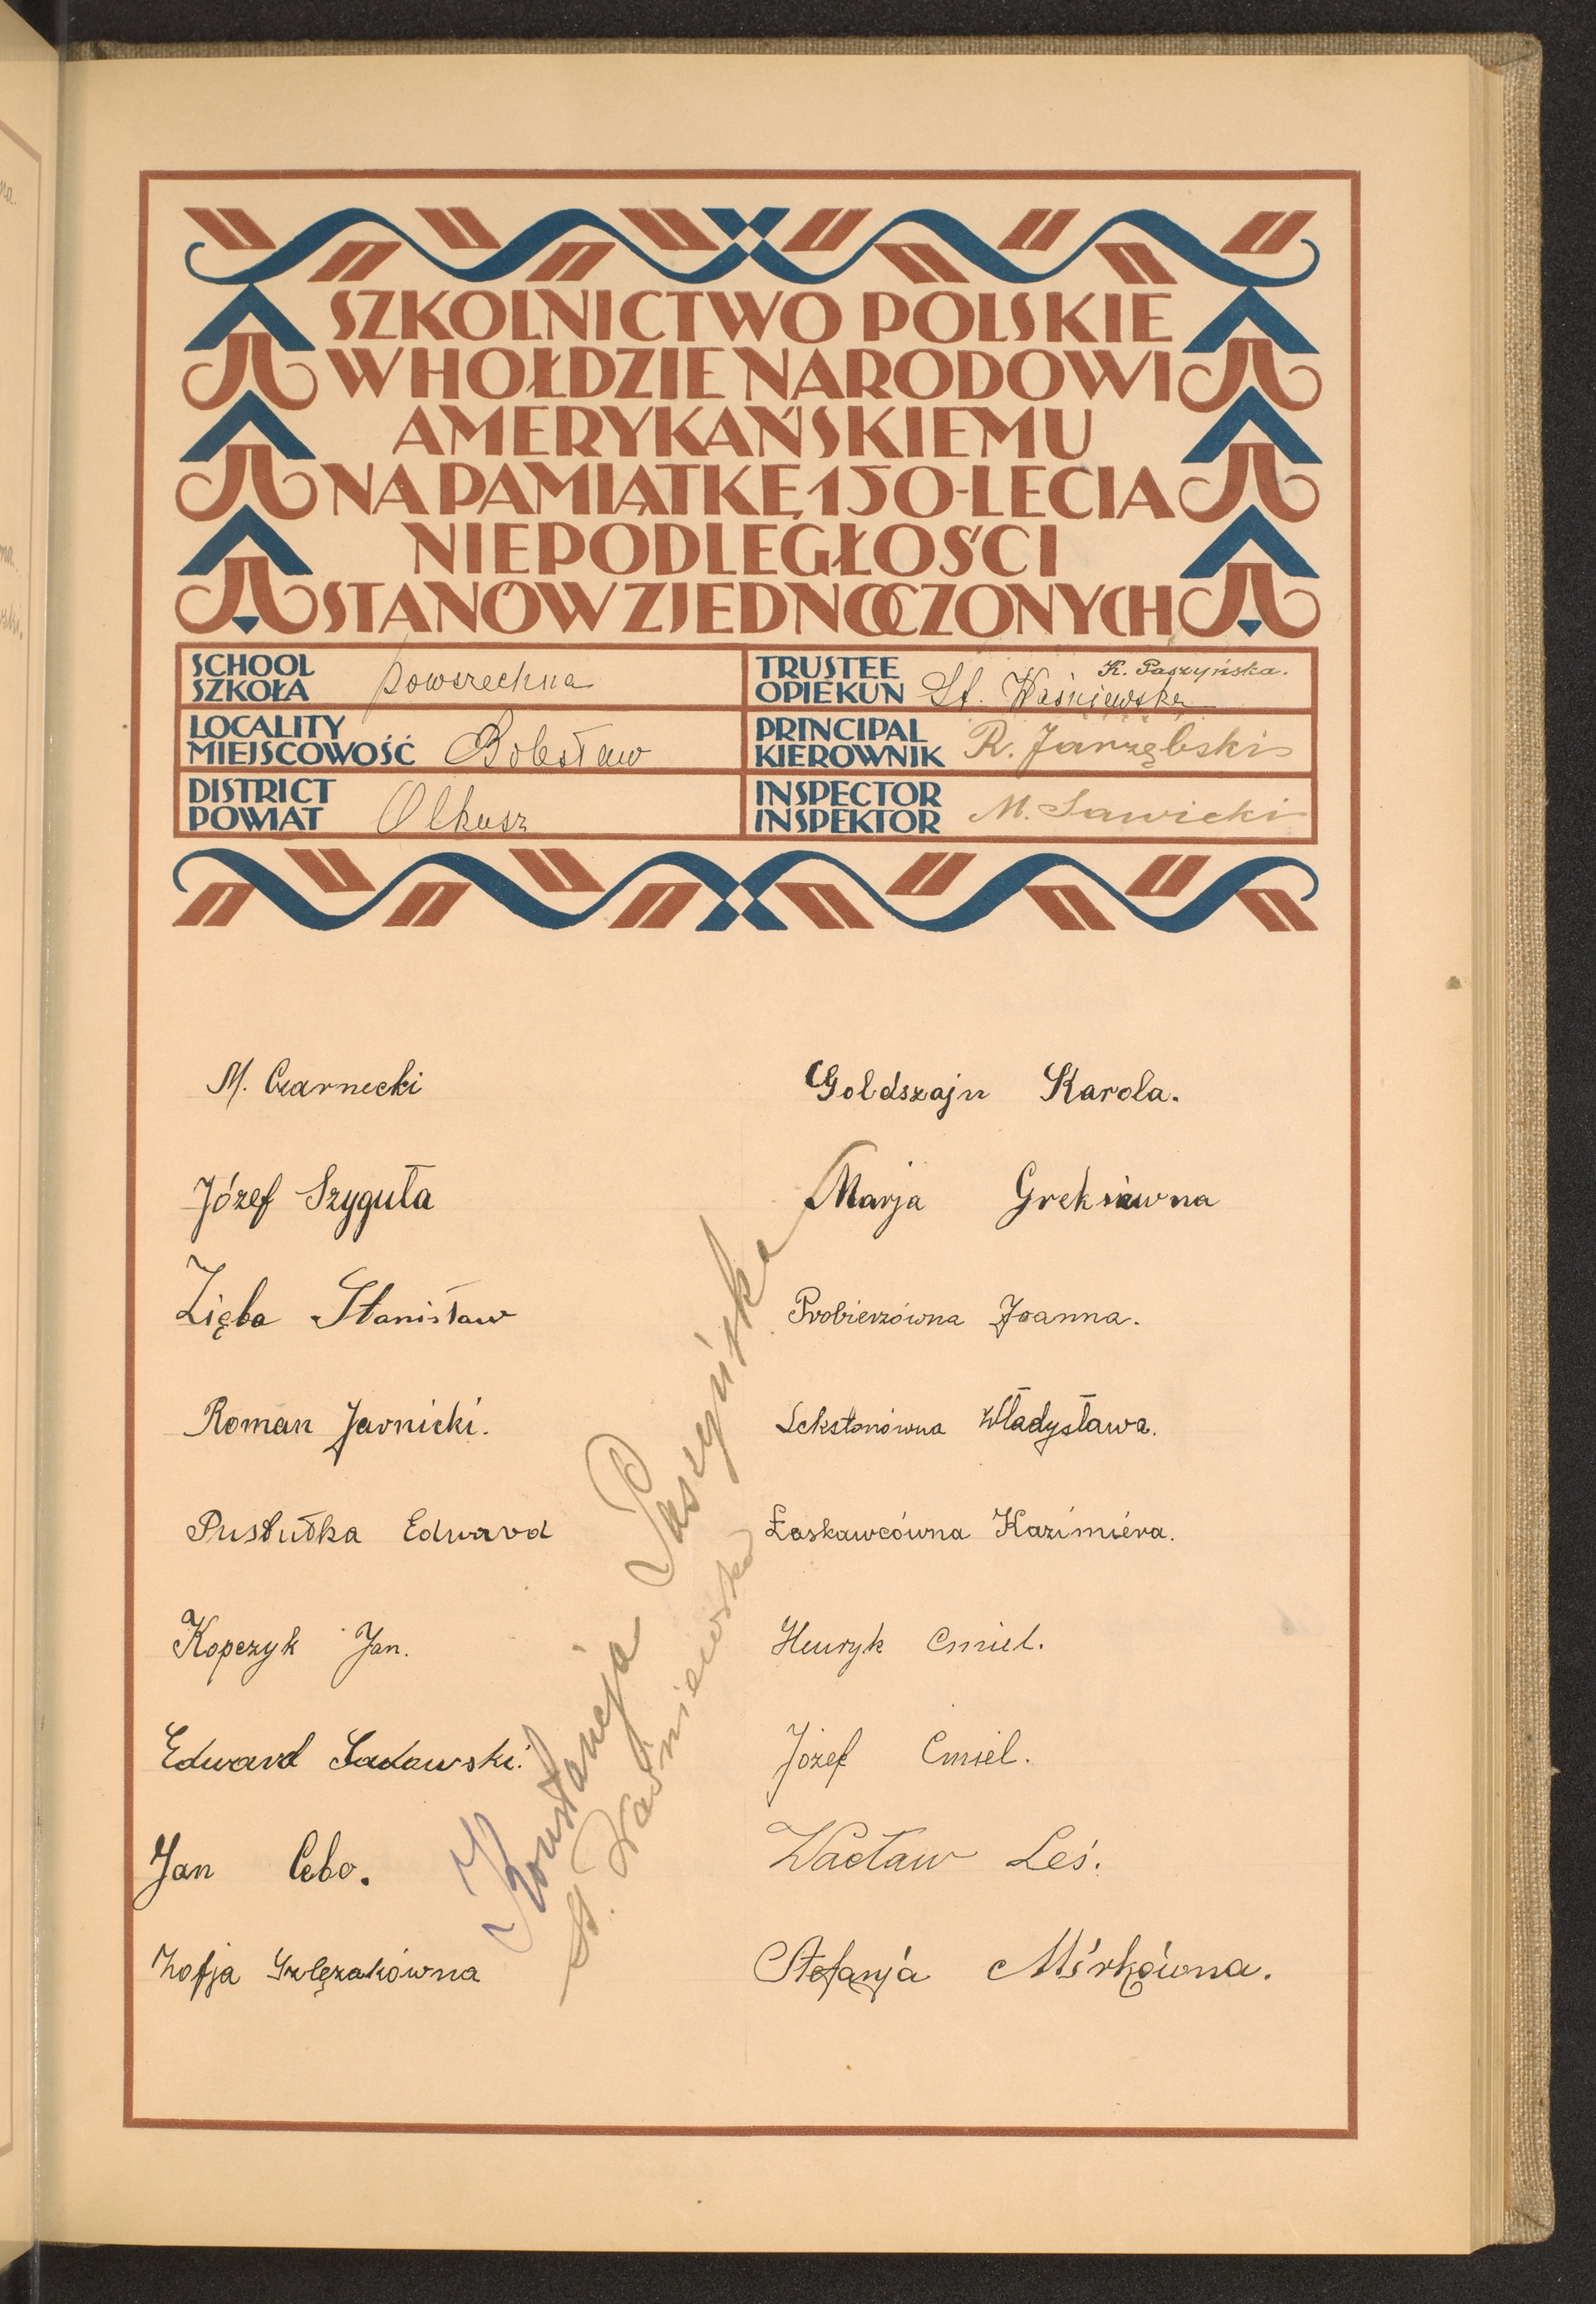 SZKOLNICTWO POLSKIE
W HOŁDZIE NARODOWI
AMERYKAŃSKIEMU
NA PAMIĄTKĘ 150-LECIA
NIEPODLEGŁOŚCI
STANÓW ZJEDNOCZONYCH
SCHOOL
SZKOŁA powszechna
TRUSTEE K. Paszyńska.
OPIEKUN St. Waśniewska
LOCALITY
MIEJSCOWOŚĆ Bolesław
PRINCIPAL
KIEROWNIK R. Jarzębski
DISTRICT
POWIAT Olkusz
INSPECTOR
INSPEKTOR M. Sawicki
M. Czarnecki
Józef Szyguła
Zięba Stanisław
Roman Jarnicki.
Pustułka Edward
Kopczyk Jan.
Edward Sadowski.
Jan Cebo.
Zofja Szlęzakówna
Konstancja Paszyńska
St. Waśniewska
Goldszajn Karola.
Marja
Probierzówna Joanna.
Sekstonówna Władysława.
Łaskawcówna Kazimiera.
Henryk Cmiel.
Józef Cmiel.
Wacław Leś.
Stefanja Mirkówna.